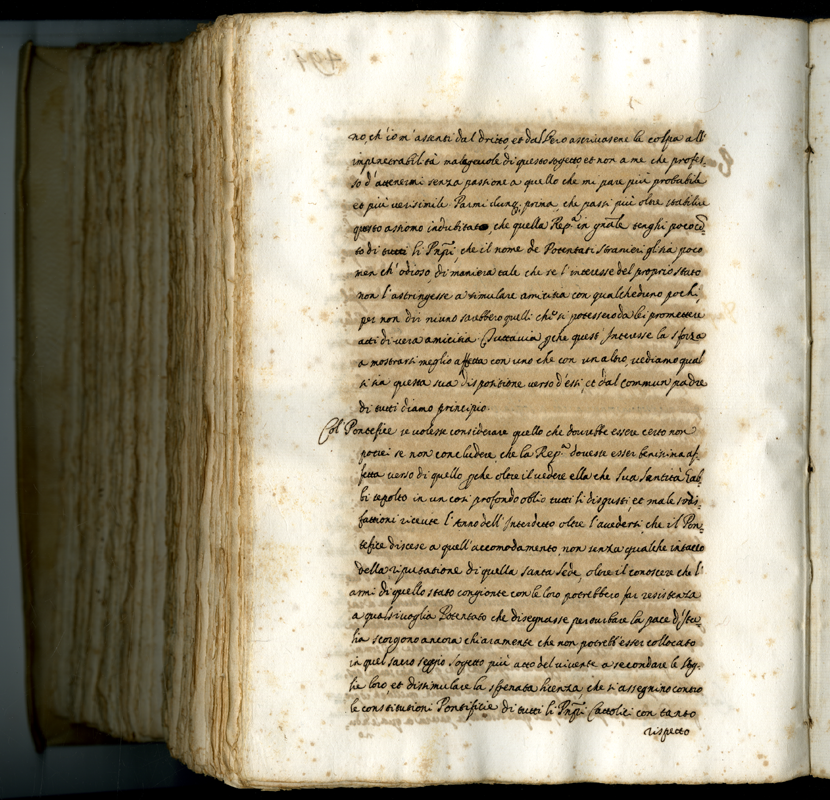 no, ch'io m'astenti dal dritto, et dal Vero ascrivasene la colpa all'
impenetrabilità malagevole di questo sogetto et non a me che profes-
so d'attenermi senza passione a quello che mi pare più probabile
et più verisimile. Parmi dunq; prima, che passi più oltre stabilire
questo assiomo indubitato, che quella Rep.ca in gñale tenghi poco cõ-
to di tutti li Pñpi, che il nome de Potentati stranieri gl'sia poco
men ch'odioso, di maniera tale che se l'interesse del proprio stato
non l'astringesse a simulare amicitia con qualcheduno pochi,
per non dir niuno sarebbero quelli che si potessero da lei promettere
atti di vera amicitia. Tuttavia pche quest'Interesse la sforza
a mostrarsi meglio affetta con uno che con un altro, vediamo qual
si sia questa sua dispositione verso d'essi, et dal commun padre
di tutti diamo principio.
Col Pontefice se volesse considerare quello che dovrebbe essere certo non
potrei se non concludere, che la Rep.ca dovesse esser benissima af-
fetta verso di quello, pche oltre il vedere ella che Sua Santità hab-
bi sepolto in un così profondo oblio tutti li disgusti et male sodis-
fattioni ricevute l'Anno dell'Interdetto oltre l'avedersi, che il Pon-
tefice discese a quell'accomodamento, non senza qualche intacco
della riputatione di quella Santa Sede, oltre il conoscere che l'
armi di quello stato congionte con le loro potrebbero far resistenza
a qualsivoglia Potentato che disegnasse perturbare la pace d'Ita-
lia scorgono ancora chiaramente che non potrebb'esser collocato
in quel sacro seggio sogetto più atto del vivente a secondare le vog-
lie loro et dissimulare la sfrenata licenza, che si assegnino contro
le constitutioni Pontificie di tutti li Pñpi Cattolici con tanto
rispetto